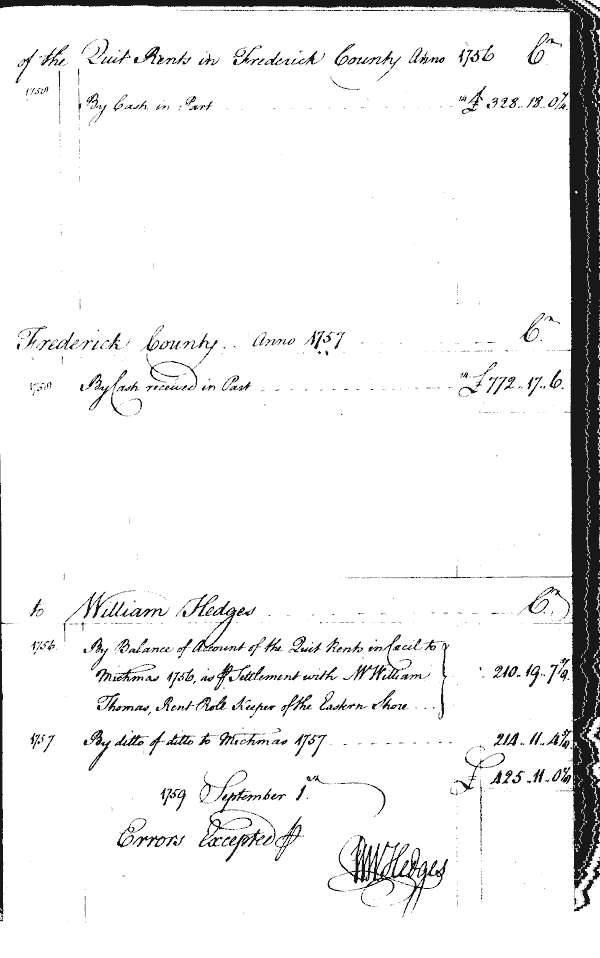 of the Quit Rents in Frederick County Anno 1756 Cr
1758 By Cash in Part £ 328..18..0¼
Frederick County .. Anno 1757 Cr
1758 By Cash received in Part £ 772..17..6.
to William Hedges Cr
1756. By Balance of Account of the Quit Rents in Cæcil to
Michmas 1756, as ⅌ Settlement with Mr William 210..19..7
Thomas, Rent Role Keeper of the Eastern Shore ...
1757 By ditto of ditto to Michmas 1757 214..11..4
£ 425..11..0
1759 September 1st
Errors Excepted ⅌
Wm Hedges